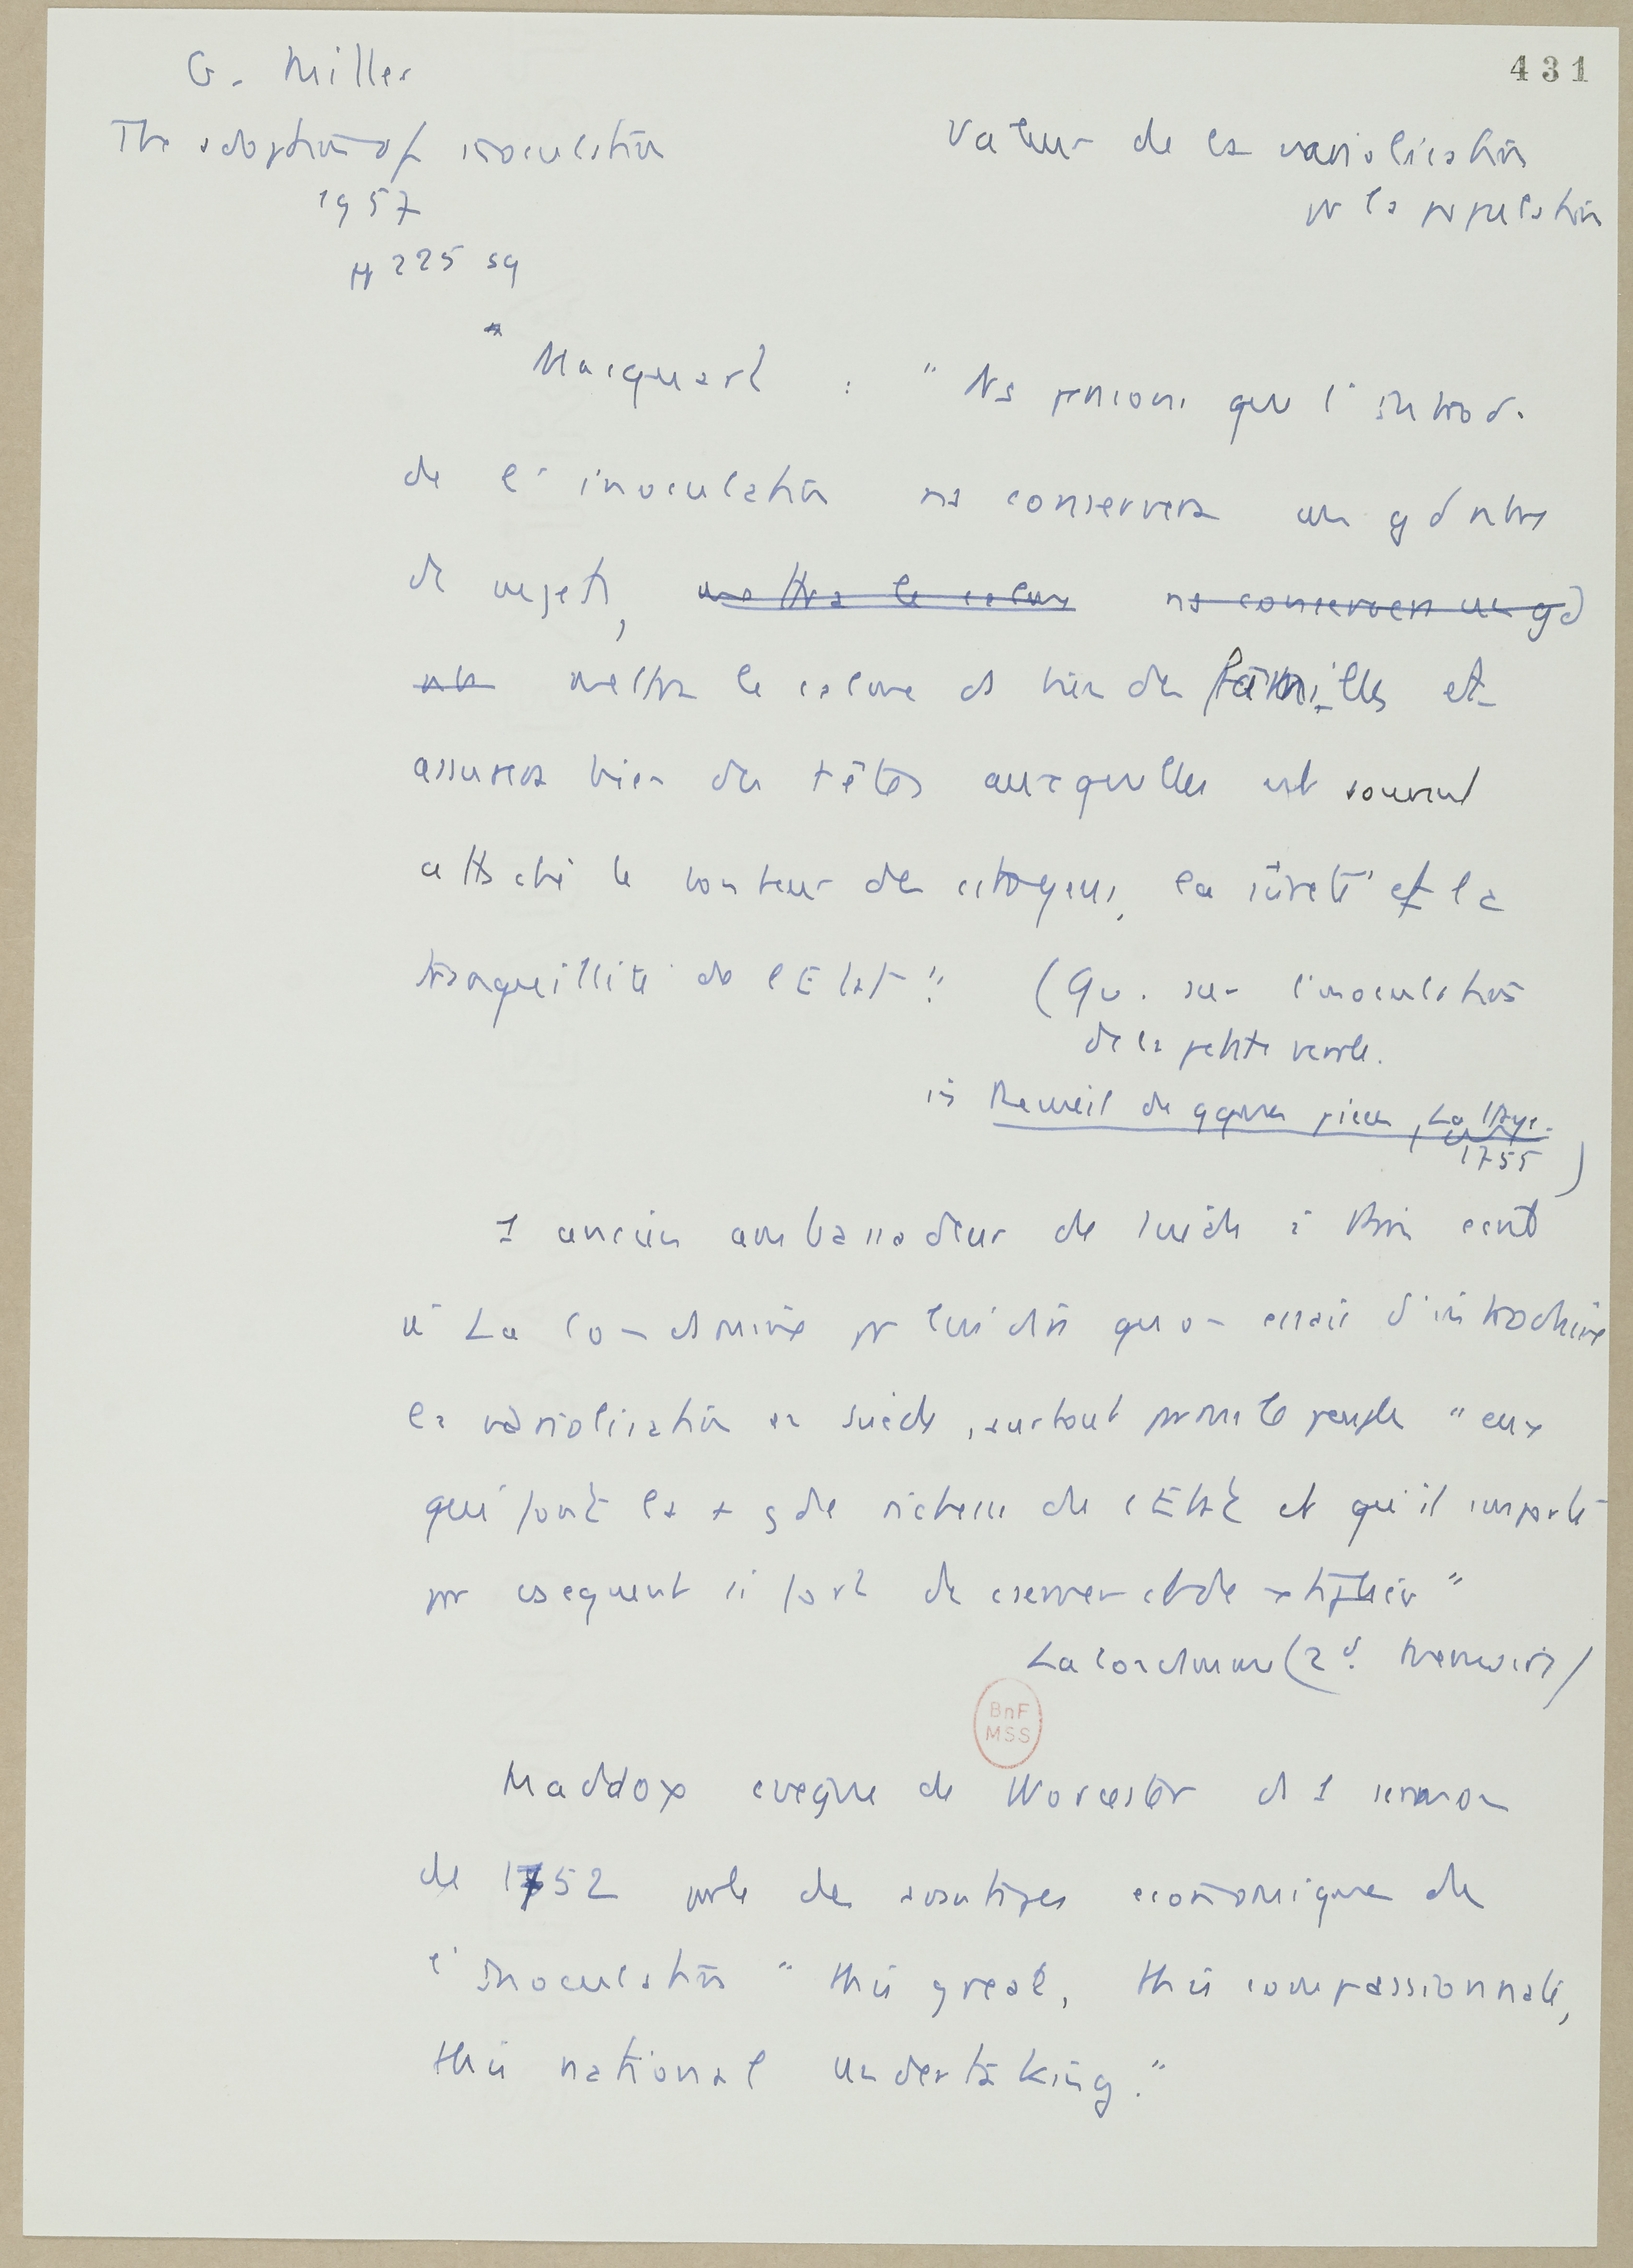 G. Miller
431
The adoption of inoculation
Valeur de la variolisation
pr la population
1957
pp 225 sq
* Macquart : " Ns pensons que l'introd.
de l'inoculation ns conservera un gd nbre
de sujets, mettra le calme ns conservera un gd
nbr mettra le calme ds bien des familles et
assurera bien des têtes auxquelles est souvent
attaché le bonheur des citoyens, la sûreté et la
tranquillité de l'Etat". (Qu. sur l'inoculation
de la petite verole.
in Recueil de qques pièces, La Haye.
1755)
1 ancien ambassadeur de Suède à Paris ecrit
à La Condamine pr lui dire qu'on essaie d'introduire
la variolisation en Suède, surtout parmi le peuple "eux
qui font la + gde richesse de l'Etat et qu'il importe
pr csequent si fort de cserver et de xtiplier"
La Condamine (2d. Memoire)
BnF
MSS
Maddox eveque de Worcester ds 1 sermon
de 1752 parle des avantages economiques de
l'inoculation "this great, this compassionnate,
this national undertaking."